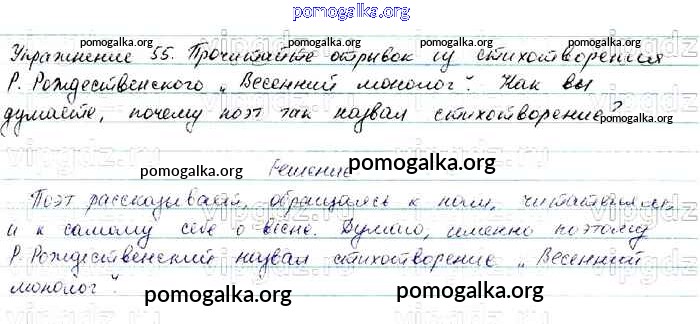 pomogalka.org
Упражнение 55. Прочитайте отрывок из стихотворения
pomogalka.org pomogalka.org pomogalka.org
Р. Рождественского „Весенний монолог". Как вы
думаете, почему поэт так назвал стихотворение?
pomogalka.org
Решение
pomogalka.org pomogalka.org
Поэт рассказывает, обращаясь к нам, читателям,
и к самому себе о весне. Думаю, именно поэтому
pomogalka.org pomogalka.org pomogalka.org
Р. Рождественский назвал стихотворение „Весенний
монолог".
pomogalka.org pomogalka.org